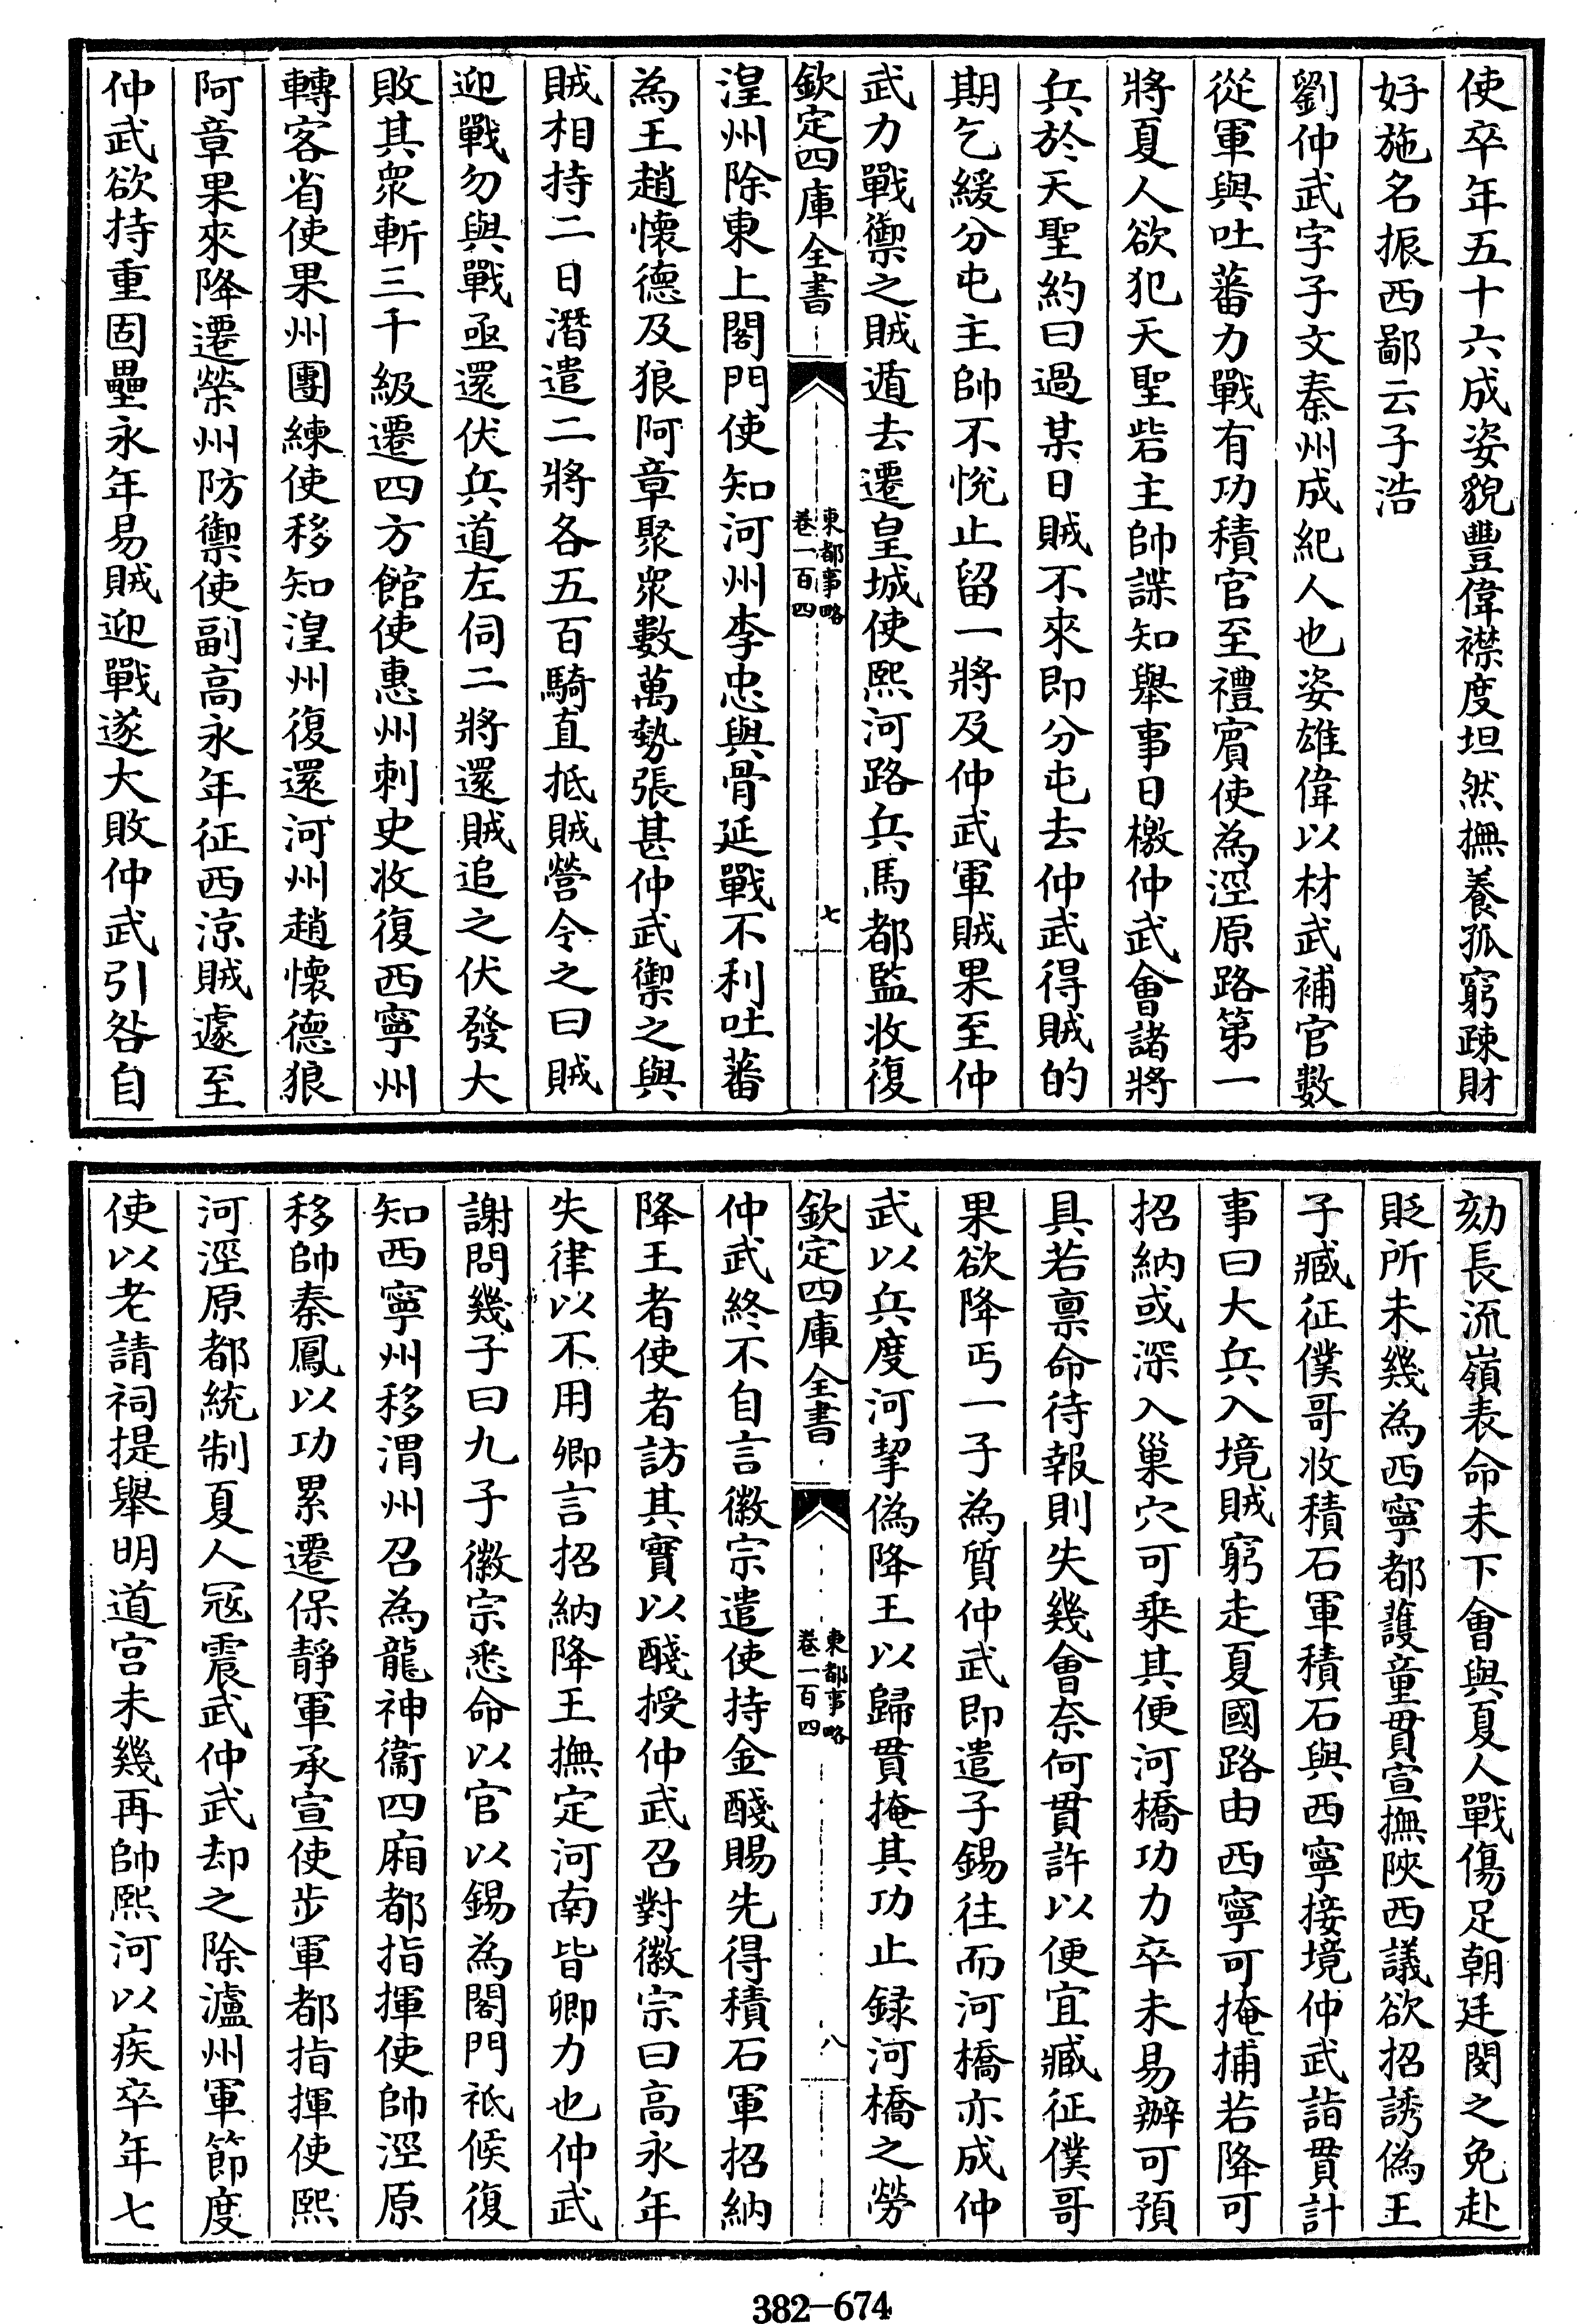 使卒年五十六成姿貌豐偉襟度坦然撫養孤窮疎財
好施名振西鄙云子浩
劉仲武字子文秦州成紀人也姿雄偉以材武補官數
從軍與吐蕃力戰有功積官至禮賓使為涇原路第一
將夏人欲犯天聖砦主帥諜知舉事日檄仲武會諸將
兵於天聖約曰過某日賊不來即分屯去仲武得賊的
期乞緩分屯主帥不悅止留一將及仲武軍賊果至仲
武力戰禦之賊遁去遷皇城使熙河路兵馬都監收復
欽定四庫全書
東都事略
卷一百四
七
湟州除東上閤門使知河州李忠與骨延戰不利吐蕃
為王趙懷德及狼阿章聚衆數萬勢張甚仲武禦之與
賊相持二日潛遣二將各五百騎直抵賊營令之曰賊
迎戰勿與戰亟還伏兵道左伺二將還賊追之伏發大
敗其衆斬三千級遷四方館使惠州刺史收復西寧州
轉客省使果州團練使移知湟州復還河州趙懷德狼
阿章果來降遷榮州防禦使副高永年征西涼賊遽至
仲武欲持重固壘永年易賊迎戰遂大敗仲武引咎自
劾長流嶺表命未下會與夏人戰傷足朝廷閔之免赴
貶所未幾為西寧都護童貫宣撫陝西議欲招誘偽王
子臧征僕哥收積石軍積石與西寧接境仲武詣貫計
事曰大兵入境賊窮走夏國路由西寧可掩捕若降可
招納或深入巢穴可乗其便河橋功力卒未易辦可預
具若禀命待報則失幾會奈何貫許以便宜臧征僕哥
果欲降丐一子為質仲武即遣子錫往而河橋亦成仲
武以兵度河挈偽降王以歸貫掩其功止録河橋之勞
欽定四庫全書
東都事略
卷一百四
八
仲武終不自言徽宗遣使持金醆賜先得積石軍招納
降王者使者訪其實以醆授仲武召對徽宗曰高永年
失律以不用卿言招納降王撫定河南皆卿力也仲武
謝問幾子曰九子徽宗悉命以官以錫為閤門祗候復
知西寧州移渭州召為龍神衞四廂都指揮使帥涇原
移帥秦鳳以功累遷保靜軍承宣使步軍都指揮使熙
河涇原都統制夏人冦震武仲武却之除瀘州軍節度
使以老請祠提舉明道宫未幾再帥熙河以疾卒年七
382-674